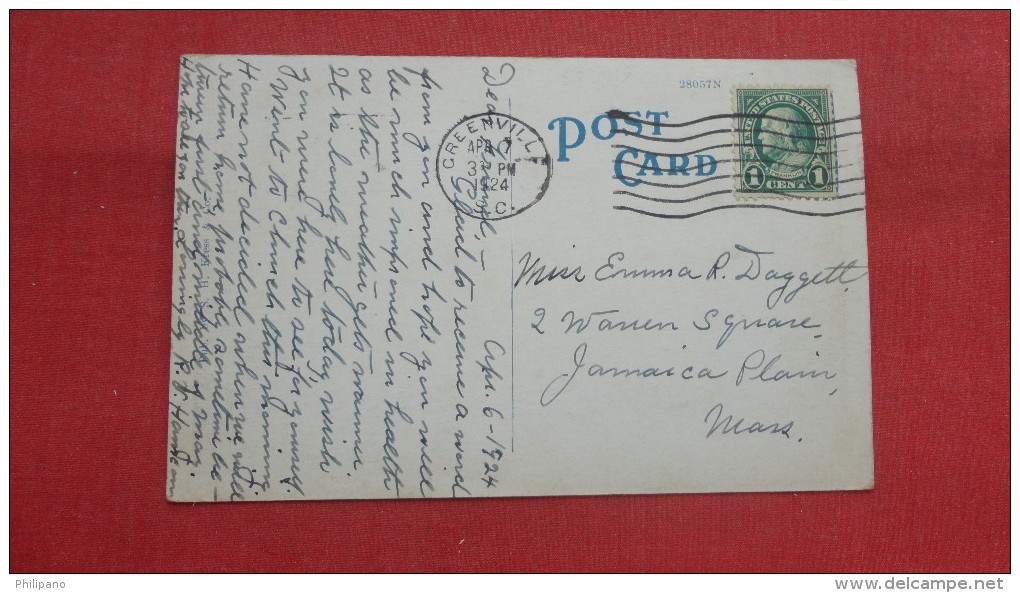 28057N
POST
CARD
UNITED STATES POSTAGE
1 CENT 1
GREENVILLE
APR 7
3 PM
1924
S.C.
Miss Emma R. Daggett,
2 Warren Square,
Jamaica Plain,
Mass.
Apr. 6-1924
Dear
Glad to receive a word
from you and hope you will
be much improved in health
as the weather gets warmer
It is lovely here today wish
you were here to see for yourself.
Went to Church this morning
Have not decided when we will
return home, probably sometime be-
tween first and middle of May.
R. J.
Philipano
www.delcampe.net